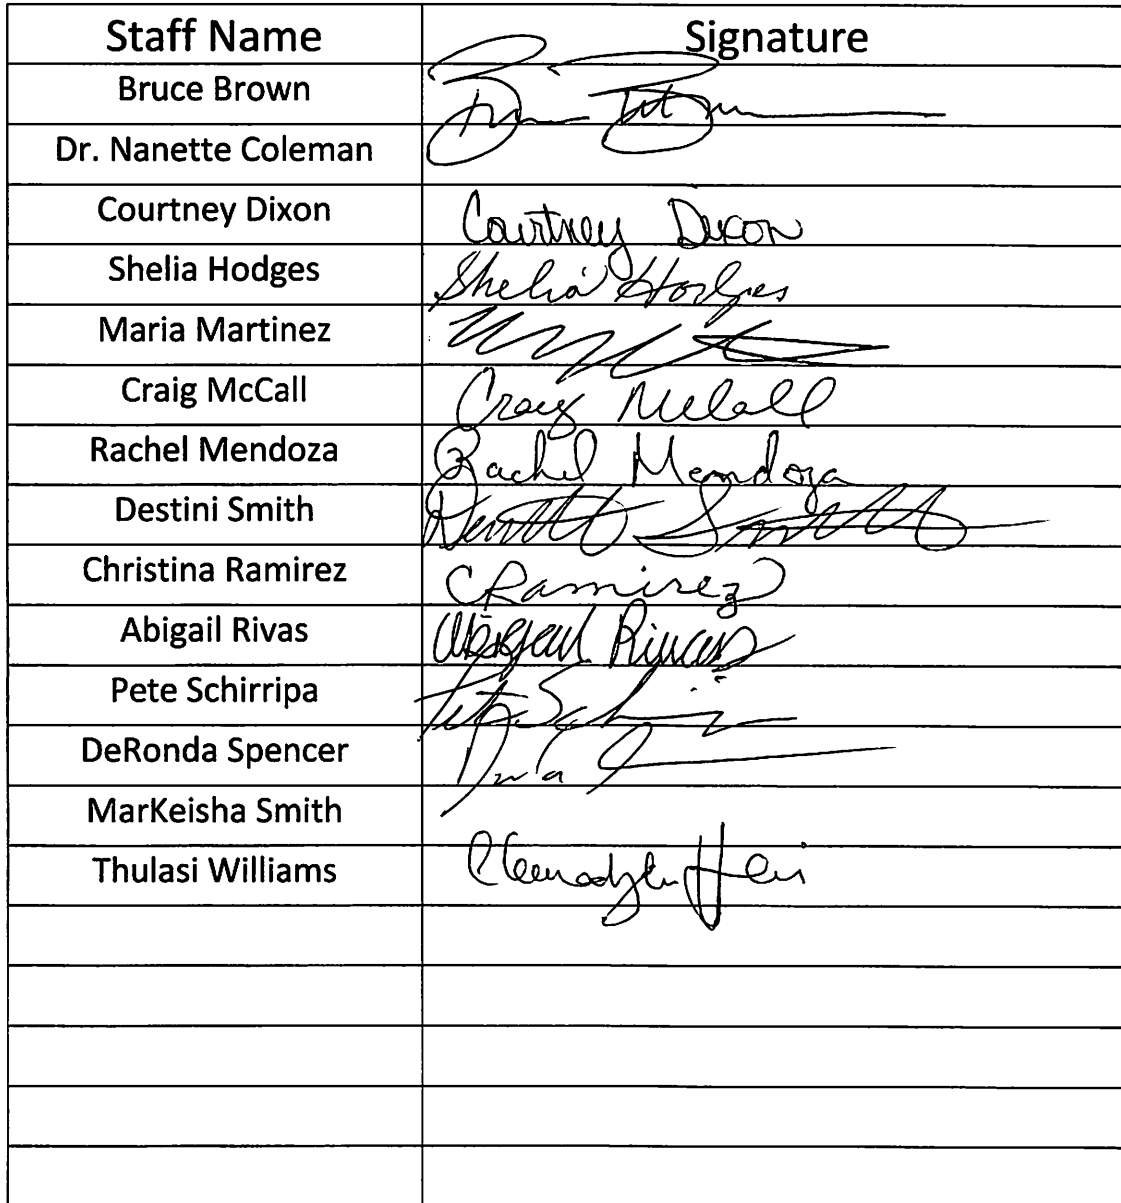 Staff Name Signature
Bruce Brown
Dr. Nanette Coleman
Courtney Dixon Courtney Dixon
Shelia Hodges Shelia Hodges
Maria Martinez
Craig McCall Craig McCall
Rachel Mendoza Rachel Mendoza
Destini Smith Smith
Christina Ramirez CRamirez
Abigail Rivas Abigail Rivas
Pete Schirripa Pete
DeRonda Spencer
MarKeisha Smith
Thulasi Williams